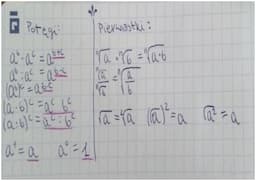 Potęgi:
aᵇ · aᶜ = aᵇ⁺ᶜ
aᵇ : aᶜ = aᵇ⁻ᶜ
(aᵇ)ᶜ = aᵇ·ᶜ
(a · b)ᶜ = aᶜ · bᶜ
(a : b)ᶜ = aᶜ : bᶜ
a¹ = a a⁰ = 1
Pierwiastki:
ⁿ√a · ⁿ√b = ⁿ√a·b
ⁿ√a / ⁿ√b = ⁿ√(a/b)
√a = ²√a (√a)² = a √a² = a